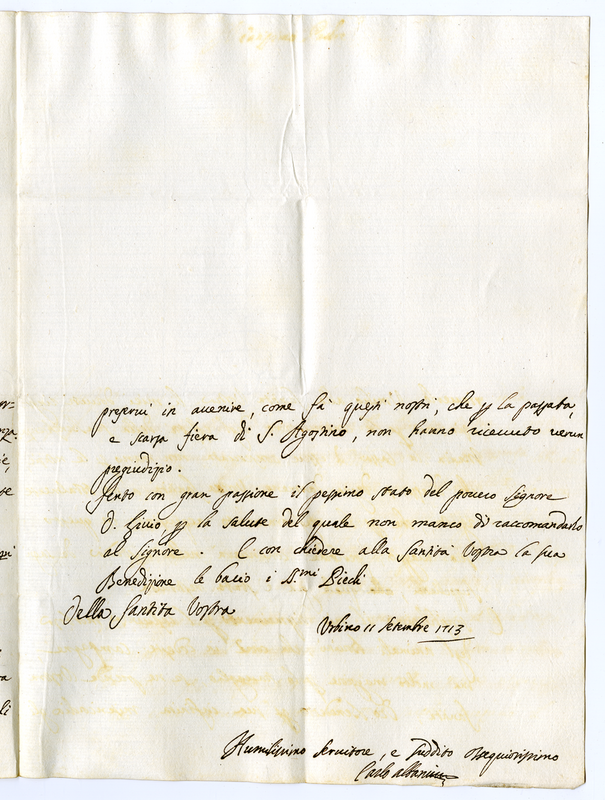 preservi in avenire, come fà questi nostri, che p la passata,
e scarsa fiera di S. Agostino, non hanno ricevuto verun
pregiudizio.
Sento con gran passione il pessimo stato del povero Signore
D. Livio, p la salute del quale non manco di raccomandarlo
al Signore. E con chiedere alla Santità Vostra la sua
Benedizione le bacio i S.mi Piedi
Della Santità Vostra
Urbino 11 Setembre 1713
Humilissimo Servitore, e Suddito Ossequiosissimo
Carlo Albani